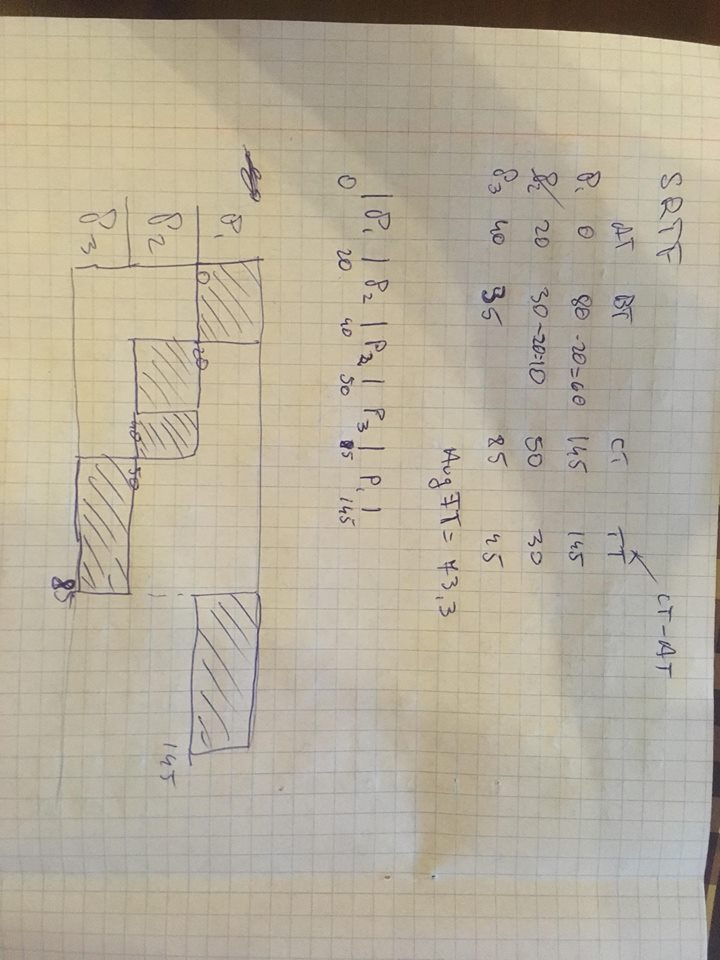 SRTF
AT BT CT TT CT-AT
P1 0 80 -20=60 145 145
P2 20 30-20=10 50 30
P3 40 35 85 45
Avg TT = 73,3
| P1 | P2 | P2 | P3 | P1 |
0 20 40 50 85 145
P1 0 20
P2 40 50 145
P3 85